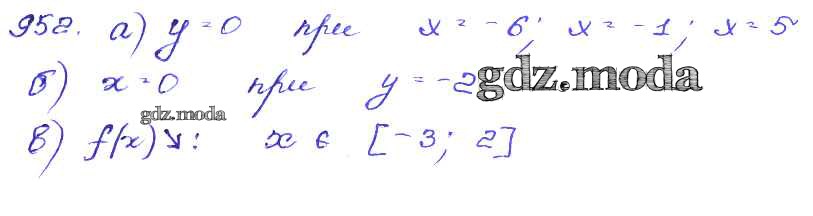 952. а) y = 0 при x = -6; x = -1; x = 5
б) x = 0 при y = -2
gdz.moda
gdz.moda
в) f(x)↘: x ∈ [-3; 2]